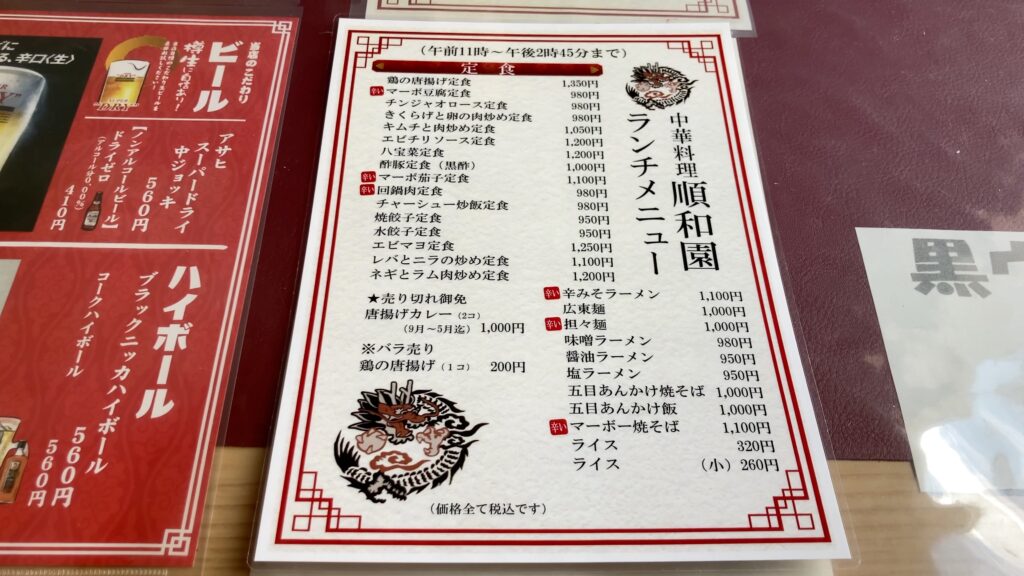 当店のこだわり
ビール
樽生に自信あり!
アサヒ
スーパードライ
中ジョッキ
560円
【ノンアルコールビール】
ドライゼロ
(アルコール分0.00%)
410円
辛口〈生〉
ハイボール
ブラックニッカハイボール
560円
コークハイボール
560円
(午前11時〜午後2時45分まで)
定食
鶏の唐揚げ定食 1,350円
辛い マーボ豆腐定食 980円
チンジャオロース定食 980円
きくらげと卵の肉炒め定食 980円
キムチと肉炒め定食 1,050円
エビチリソース定食 1,200円
八宝菜定食 1,200円
酢豚定食(黒酢) 1,000円
辛い マーボ茄子定食 1,100円
辛い 回鍋肉定食 980円
チャーシュー炒飯定食 980円
焼餃子定食 950円
水餃子定食 950円
エビマヨ定食 1,250円
レバとニラの炒め定食 1,100円
ネギとラム肉炒め定食 1,200円
★売り切れ御免
唐揚げカレー(2コ)
(9月〜5月迄) 1,000円
※バラ売り
鶏の唐揚げ(1コ) 200円
中華料理 順和園
ランチメニュー
辛い 辛みそラーメン 1,100円
広東麺 1,000円
辛い 担々麺 1,000円
味噌ラーメン 980円
醤油ラーメン 950円
塩ラーメン 950円
五目あんかけ焼そば 1,000円
五目あんかけ飯 1,000円
辛い マーボー焼そば 1,100円
ライス 320円
ライス (小)260円
(価格全て税込です)
黒